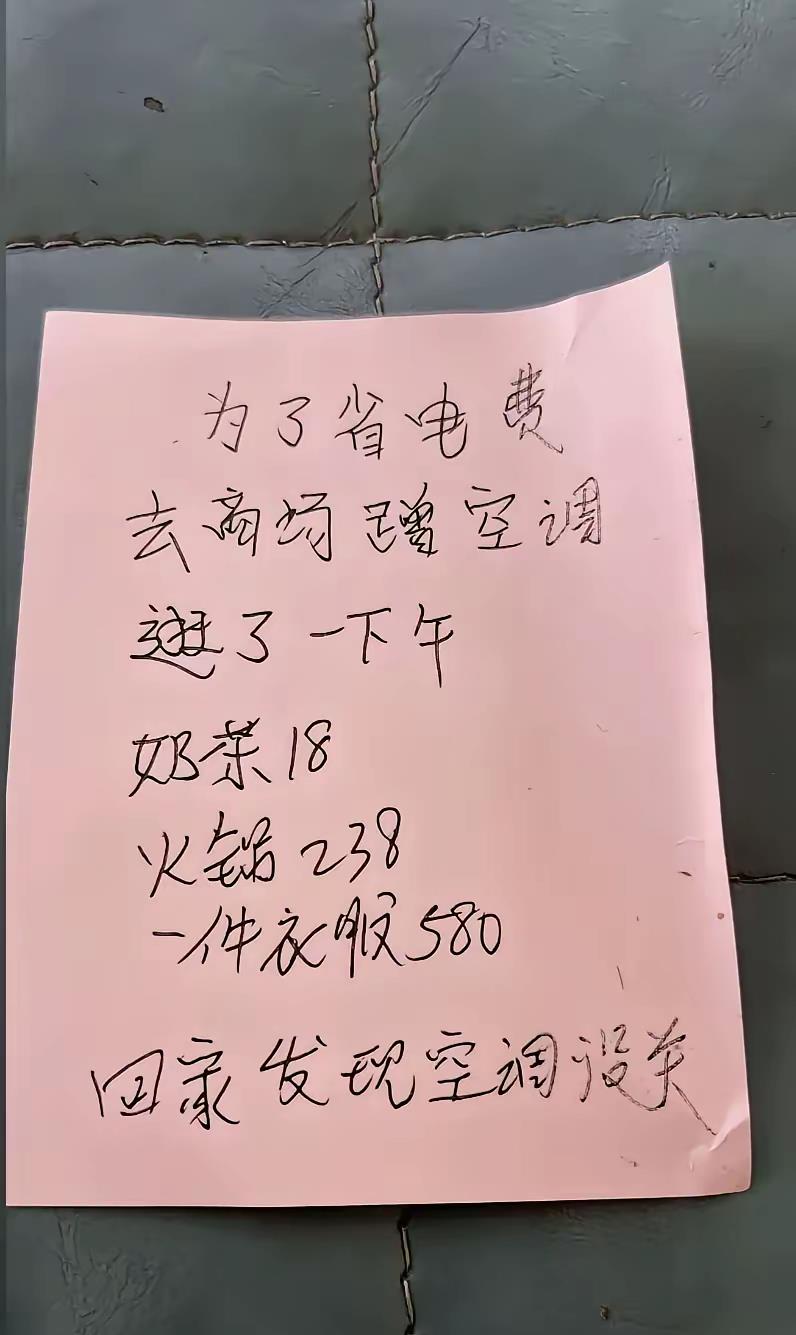 为了省电费
去商场蹭空调
逛了一下午
奶茶18
火锅238
一件衣服580
回家发现空调没关